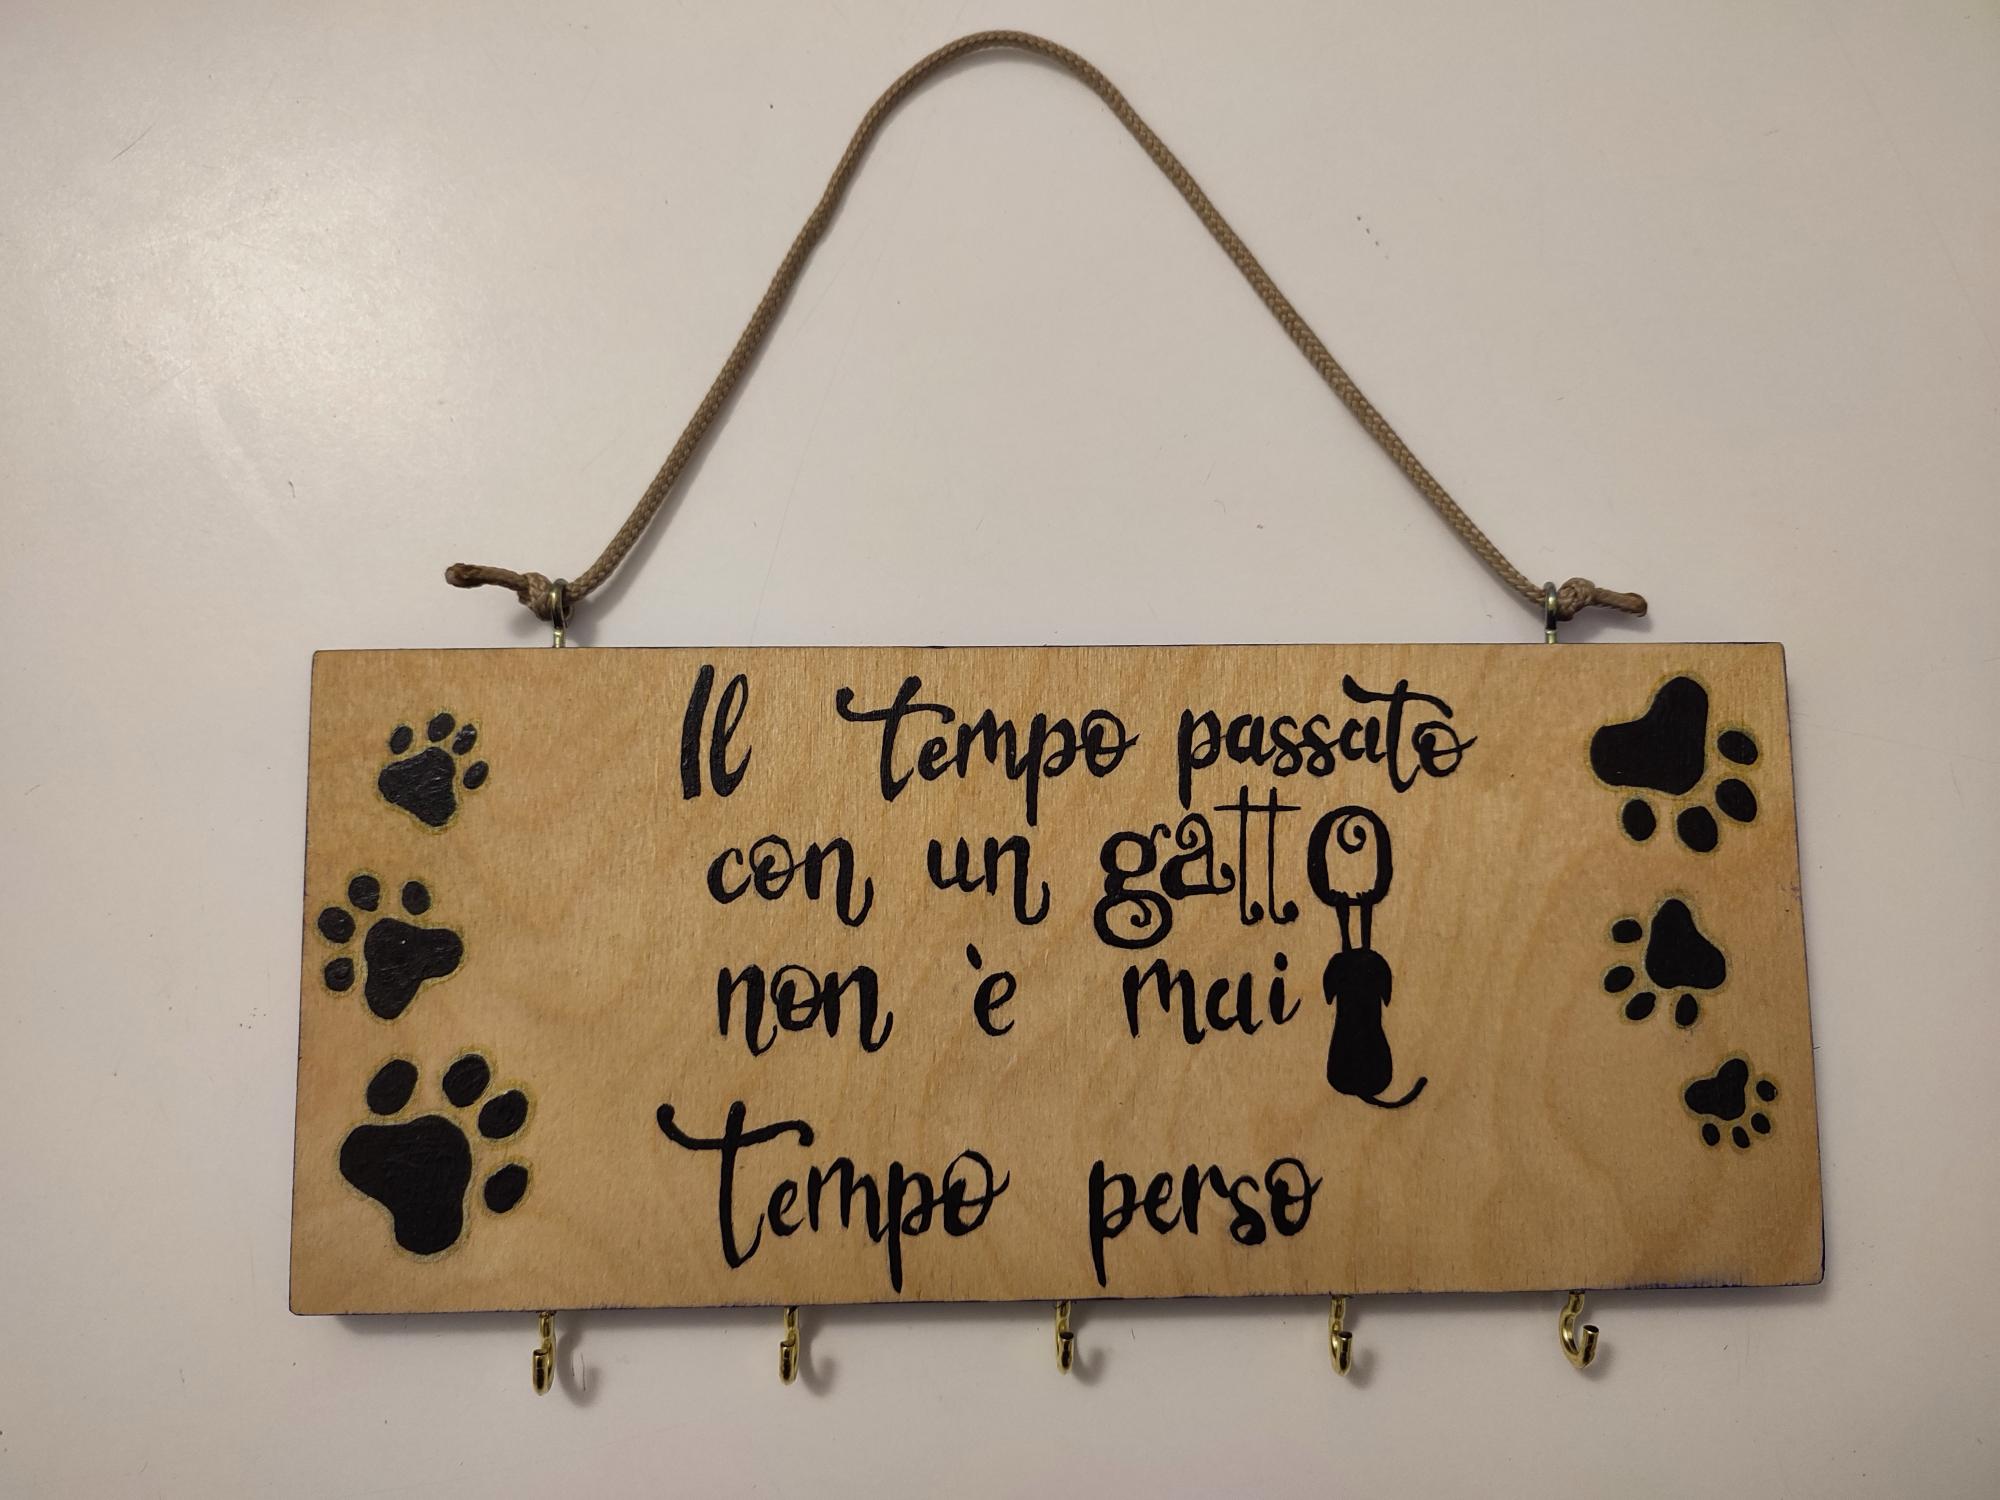 Il tempo passato
con un gatto
non è mai
Tempo perso